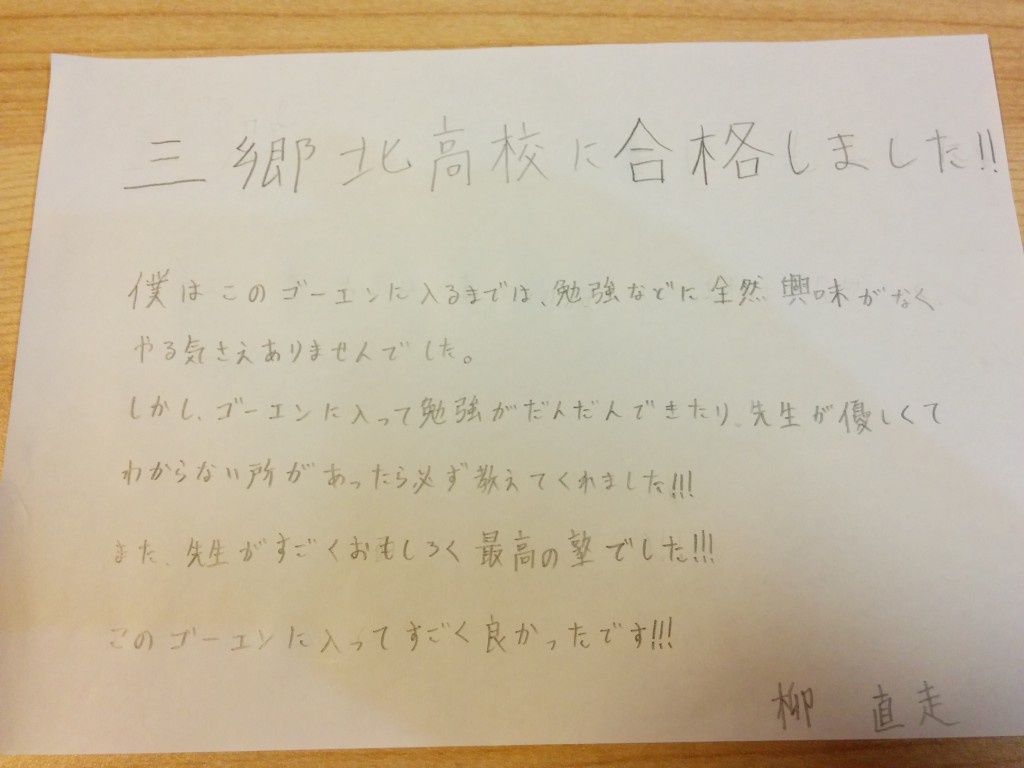 三郷北高校に合格しました!!
僕はこのゴーエンに入るまでは、勉強などに全然興味がなく
やる気さえありませんでした。
しかし、ゴーエンに入って勉強がだんだんできたり、先生が優しくて
わからない所があったら必ず教えてくれました!!!
また、先生がすごくおもしろく最高の塾でした!!!
このゴーエンに入ってすごく良かったです!!!
柳 直走